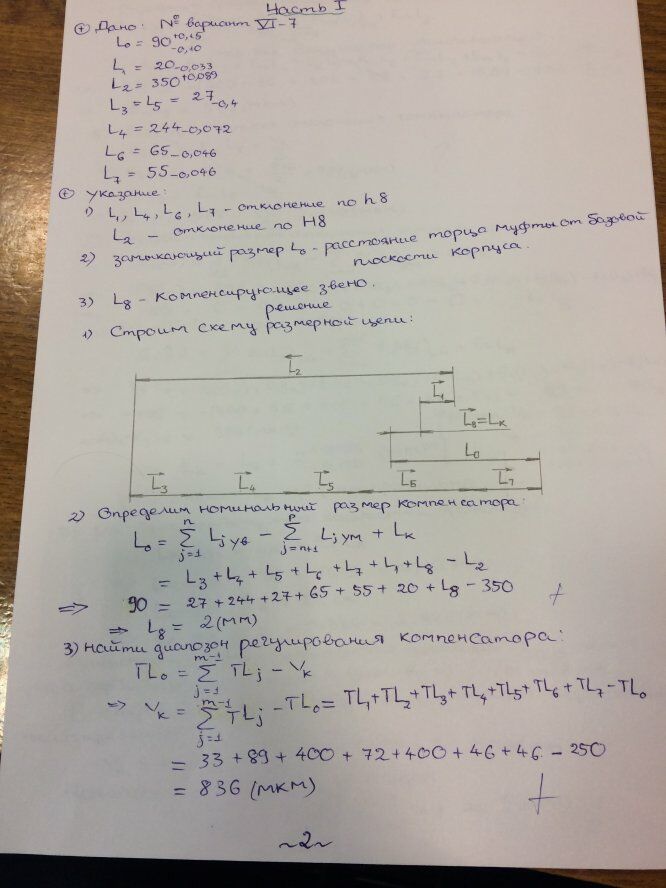 Часть I
⊕ Дано: № вариант VI-7
L₀ = 90 +0,15 -0,10
L₁ = 20 -0,033
L₂ = 350 +0,089
L₃ = L₅ = 27 -0,4
L₄ = 244 -0,072
L₆ = 65 -0,046
L₇ = 55 -0,046
⊕ Указание:
1) L₁, L₄, L₆, L₇ - отклонение по h8
L₂ - отклонение по H8
2) замыкающий размер L₀ - расстояние торца муфты от базовой
плоскости корпуса.
3) L₈ - компенсирующее звено.
решение
1) Строим схему размерной цепи:
L₂
L₁
L₈=Lк
L₀
L₃ L₄ L₅ L₆ L₇
2) Определим номинальный размер компенсатора:
L₀ = Σ(j=1, n) Lj ув - Σ(j=n+1, p) Lj ум + Lк
= L₃ + L₄ + L₅ + L₆ + L₇ + L₁ + L₈ - L₂
⇒ 90 = 27 + 244 + 27 + 65 + 55 + 20 + L₈ - 350
⇒ L₈ = 2 (мм) +
3) найти диапозон регулирования компенсатора:
TL₀ = Σ(j=1, m-1) TLj - Vк
⇒ Vк = Σ(j=1, m-1) TLj - TL₀ = TL₁ + TL₂ + TL₃ + TL₄ + TL₅ + TL₆ + TL₇ - TL₀
= 33 + 89 + 400 + 72 + 400 + 46 + 46 - 250
= 836 (мкм) +
~2~